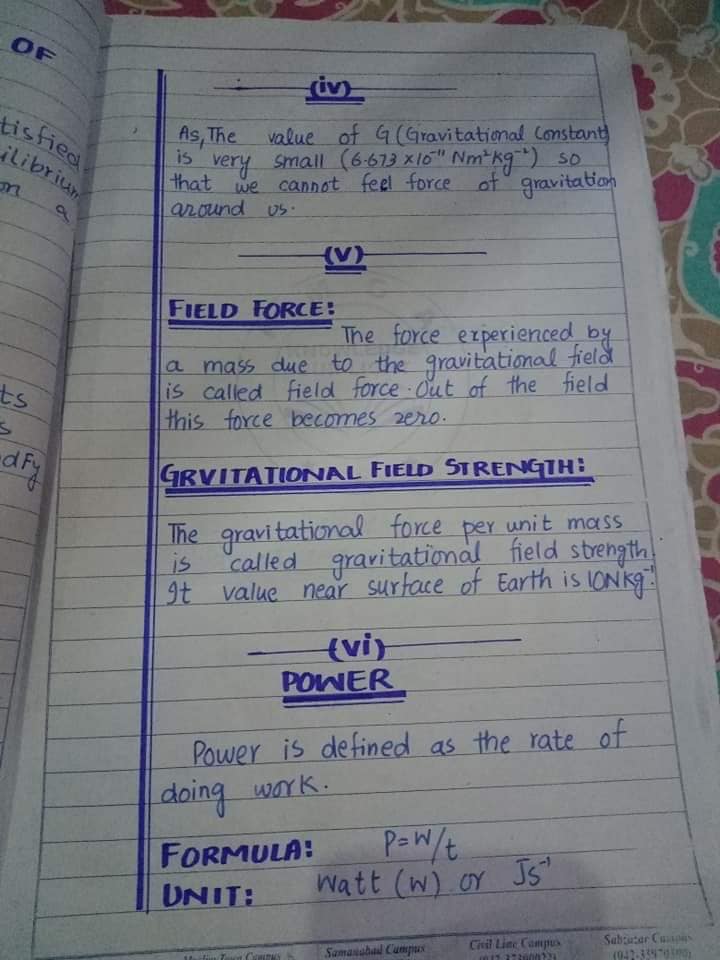 OF
tisfied
ilibrium
on a
ts
s
dFy
(iv)
As, The value of G (Gravitational Constant)
is very small (6.673 x10⁻¹¹ Nm²kg⁻²) so
that we cannot feel force of gravitation
around us.
(v)
FIELD FORCE:
The force experienced by
a mass due to the gravitational field
is called field force. Out of the field
this force becomes zero.
GRVITATIONAL FIELD STRENGTH:
The gravitational force per unit mass
is called gravitational field strength.
It value near surface of Earth is 10NKg⁻¹.
(vi)
POWER
Power is defined as the rate of
doing work.
FORMULA: P=W/t
UNIT: Watt (W) or Js⁻¹
Muslim Town Campus Samanabad Campus Civil Line Campus Sabzazar Campus